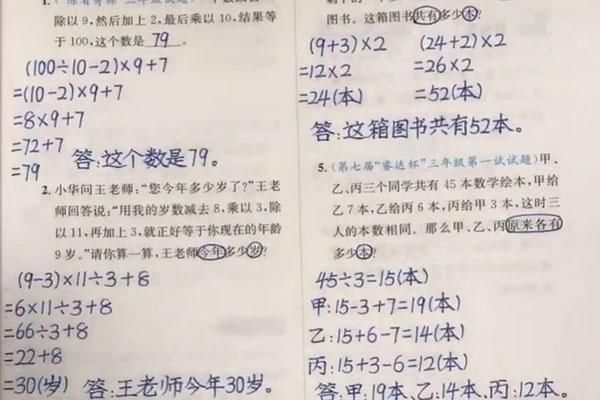 除以9,然后加上2,最后乘以10,结果等
于100,这个数是 79 。
(100÷10-2)×9+7
=(10-2)×9+7
=8×9+7
=72+7
=79 答:这个数是79。
2. 小华问王老师:"您今年多少岁了?"王老
师回答说:"用我的岁数减去8,乘以3,除
以11,再加上3,就正好等于你现在的年龄
9岁。"请你算一算,王老师今年多少岁?
(9-3)×11÷3+8
=6×11÷3+8
=66÷3+8
=22+8
=30(岁) 答:王老师今年30岁。
图书。这箱图书共有多少本?
(9+3)×2 (24+2)×2
=12×2 =26×2
=24(本) =52(本)
答:这箱图书共有52本。
5. (第七届"睿达杯"三年级第一试试题)甲、
乙、丙三个同学共有45本数学绘本,甲给
乙7本,乙给丙6本,丙给甲3本,这时三
人的本数相同。那么甲、乙、丙原来各有
多少本?
45÷3=15(本)
甲:15-3+7=19(本)
乙:15+6-7=14(本)
丙:15+3-6=12(本)
答:甲:19本、乙:14本、丙:12本。